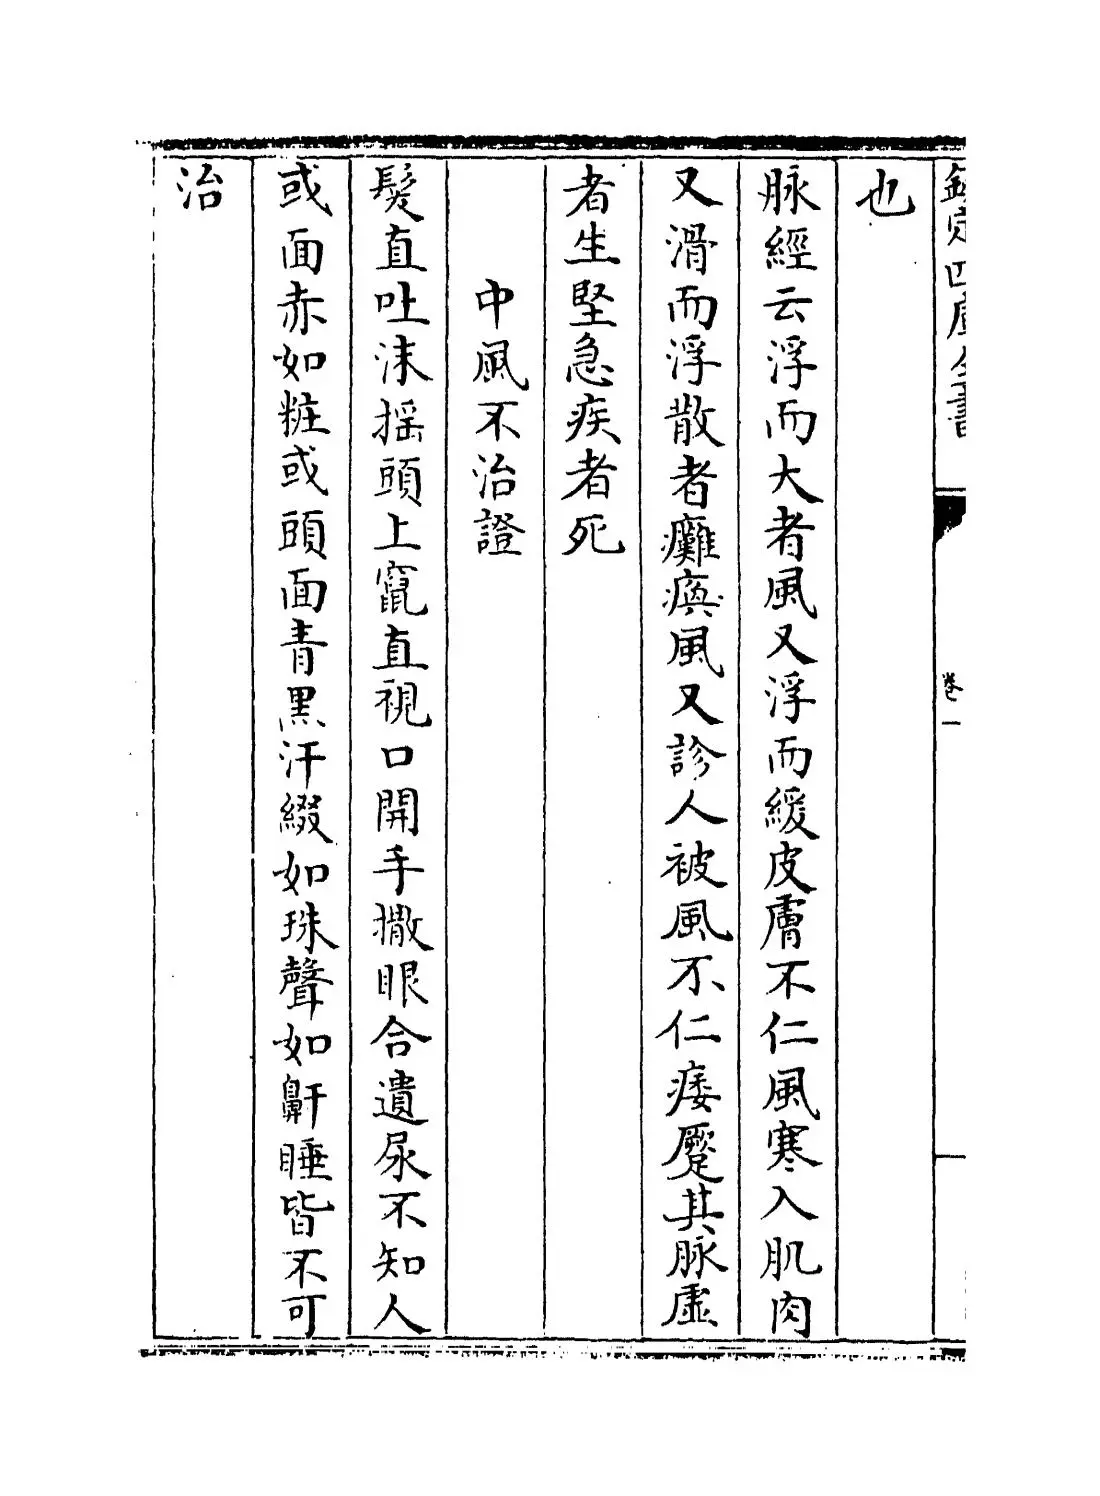 欽定四庫全書
卷一
也
脉經云浮而大者風又浮而緩皮膚不仁風寒入肌肉
又滑而浮散者癱瘓風又診人被風不仁痿躄其脉虛
者生堅急疾者死
中風不治證
髮直吐沫揺頭上竄直視口開手撒眼合遺尿不知人
或面赤如粧或頭面青黑汗綴如珠聲如鼾睡皆不可
治